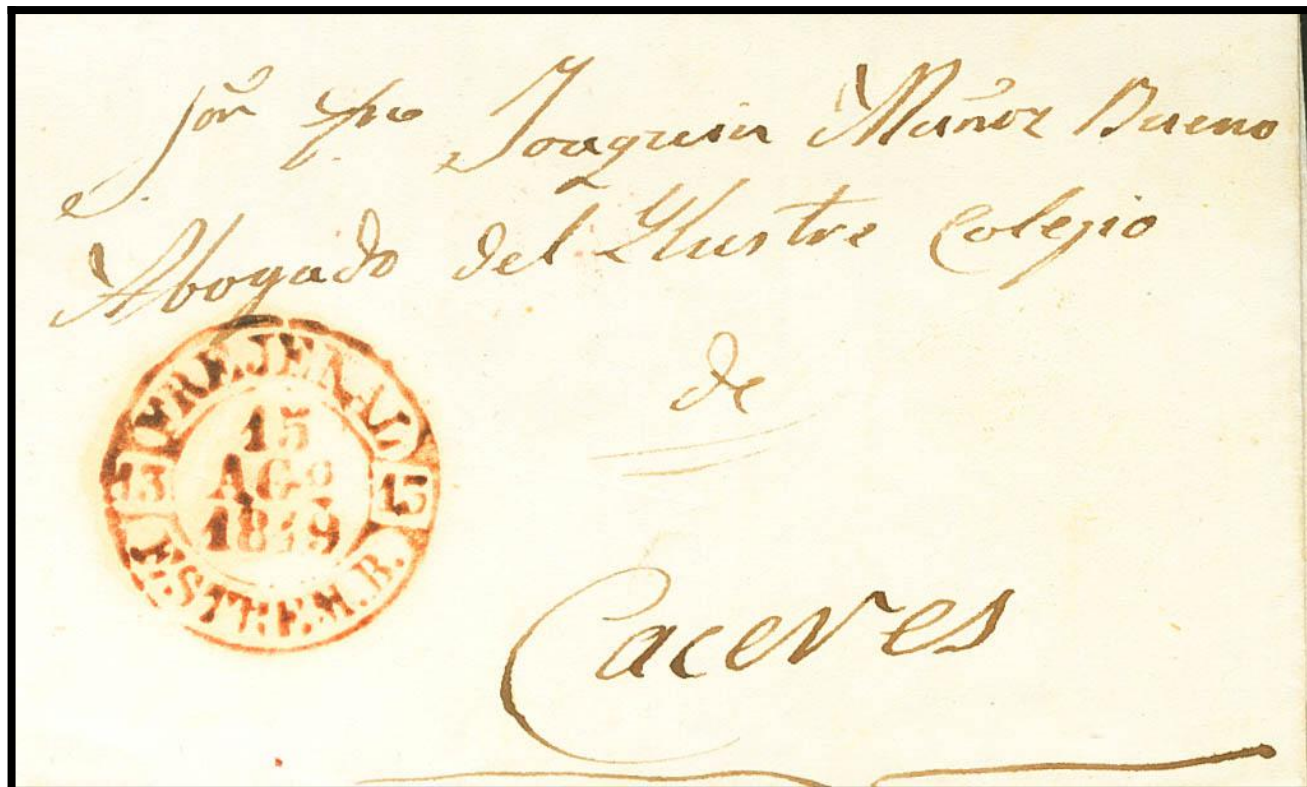 Sor Joaquin Muñoz Bueno
Abogado del Ylustre Colegio
de
Caceres
FREJENAL
15
AGO
1849
ESTREM.B.